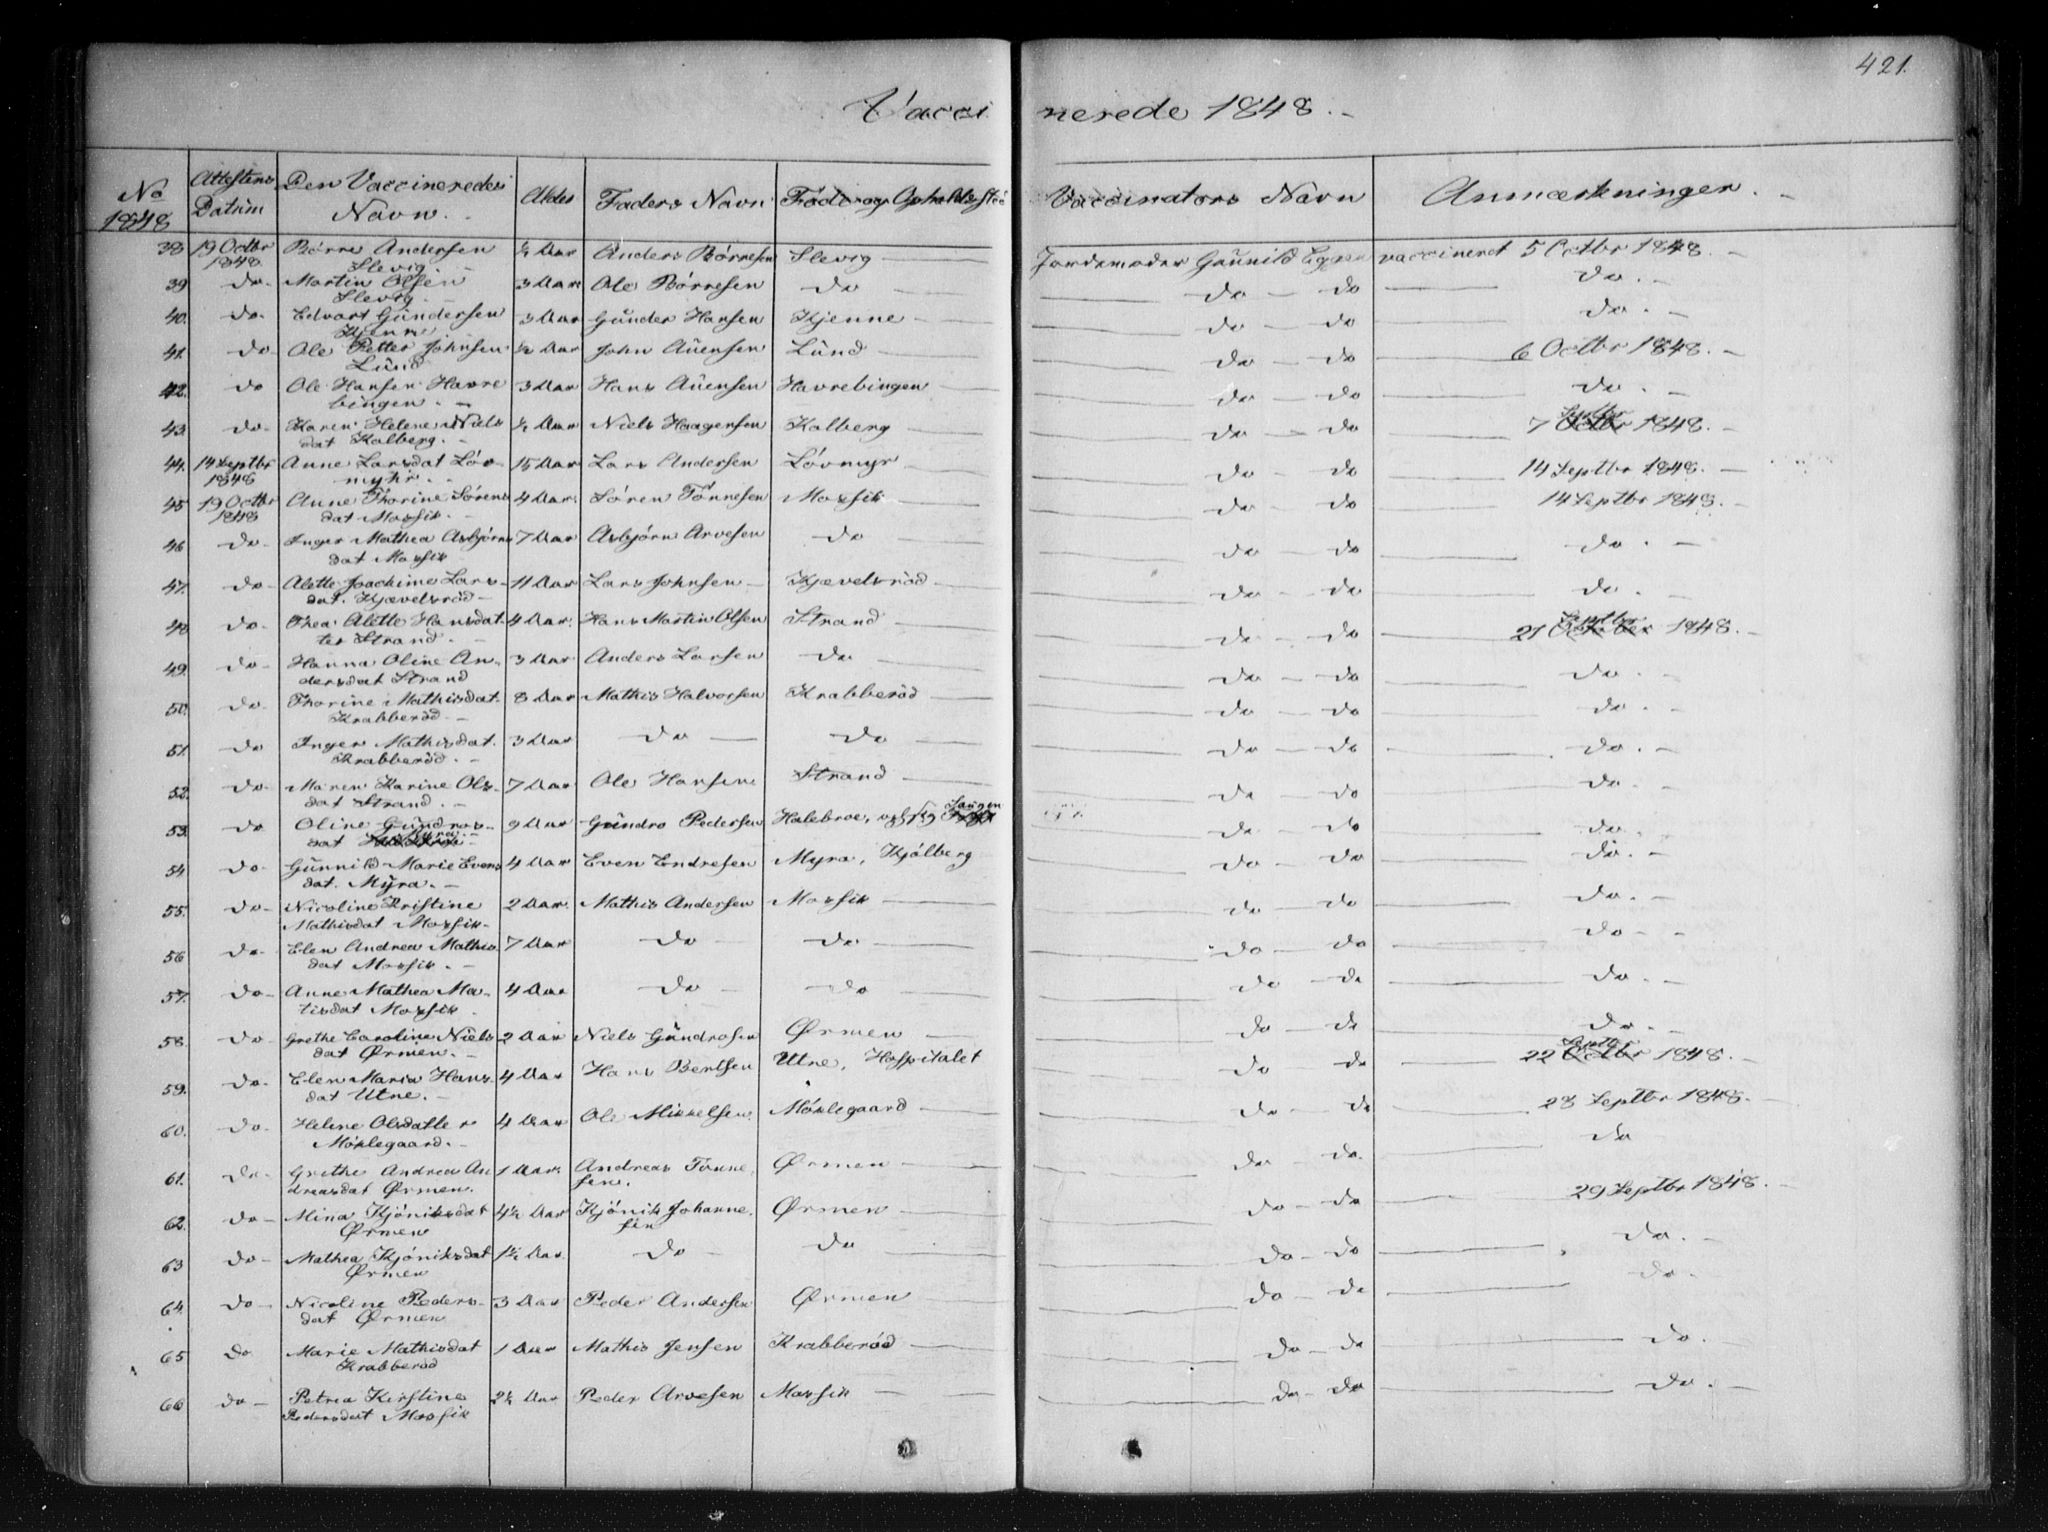 421.
Vaccinerede 1848.
No 1848 | Attestens Datum | Den Vaccineredes Navn. | Alder | Faders Navn | Føde og Opholdssted | Vaccinators Navn | Anmærkninger.
38 19 Octbr 1848 Børre Andersen Slevig. ½ Aar Anders Børresen Slevig Jordemoder Gunnild Eggen vaccineret 5 Octbr 1848.
39 do Martin Olsen Slevig. 3 Aar Ole Børresen do do do do.
40. do Edvart Gundersen Kjenne 3 Aar Gunder Hansen Kjenne do do do.
41. do Ole Petter Johnsen Lund ½ Aar John Auensen Lund do do 6 Octbr 1848.
42. do Ole Hansen Havrebingen. 3 Aar Hans Auensen Havrebingen do do do.
43 do Karen Helene Nielsdat Kalberg. ½ Aar Niels Haagensen Kalberg do do 7 Septbr 1848.
44. 14 Septbr 1848 Anne Larsdat Løvmyhr. 15 Aar Lars Andersen Løvmyr do do 14 Septbr 1848.
45 19 Octbr 1848 Anne Thorine Sørensdat Mossik. 4 Aar. Søren Tønnesen Mossik do do 14 Septbr 1848.
46 do Inger Mathea Asbjørnsdat Mossik 7 Aar Asbjørn Arvesen do do do do.
47. do Alette Joachime Larsdat. Kjævelsrød 11 Aar Lars Johnsen Kjævelsrød do do do.
48 do Thea Alette Hansdatter Strand. 4 Aar. Hans Martin Olsen Strand do do 21 Septbr 1848.
49. do Hanna Oline Andersdat Strand 3 Aar Anders Larsen do do do do.
50. do Thorine Mathisdat. Krabberød. 8 Aar Mathis Halvorsen Krabberød do do do.
51. do Inger Mathisdat. Krabberød. 3 Aar do do do do do.
52. do Maren Karine Olsdat Strand. 7 Aar Ole Hansen Strand do do do.
53. do Oline Gundrosdat Myra. 9 Aar Gundro Pedersen Halebroe, do do do.
54 do Gunnild Marie Evensdat. Myra. 4 Aar Even Endresen Myra, Kjølberg do do do.
55. do Nicoline Kristine Mathisdat Mossik. 2 Aar. Mathis Andersen Mossik do do do.
56 do Elen Andrea Mathisdat Mossik. 7 Aar do do do do do
57. do Anne Mathea Matisdat Mossik. 4 Aar do do do do do.
58. do Grethe Caroline Nielsdat Ørmen. 2 Aar Niels Gundrosen Ørmen do do do.
59. do Elen Maria Hansdat Utne. 4 Aar Hans Bentsen Utne, Hospitalet do do 22 Septbr 1848.
60. do Helene Olsdatter Møklegaard. 4 Aar Ole Mikkelsen Møklegaard do do 28 Septbr 1848.
61. do Grethe Andrea Andreasdat Ørmen. 1 Aar. Andreas Tønnesen. Ørmen do do. do
62. do Mina Kjøniksdat Ørmen 4½ Aar Kjønik Johannesen Ørmen do do 29 Septbr 1848.
63 do Mathea Kjøniksdat Ørmen 1½ Aar do do do do do.
64. do Nicoline Pedersdat Ørmen 3 Aar Peder Andersen Ørmen do do do.
65 do Marie Mathisdat Krabberød 1 Aar Mathis Jensen Krabberød do do do.
66 do Petrea Kirstine Pedersdat Mossik 2½ Aar Peder Arvesen Mossik do do do.